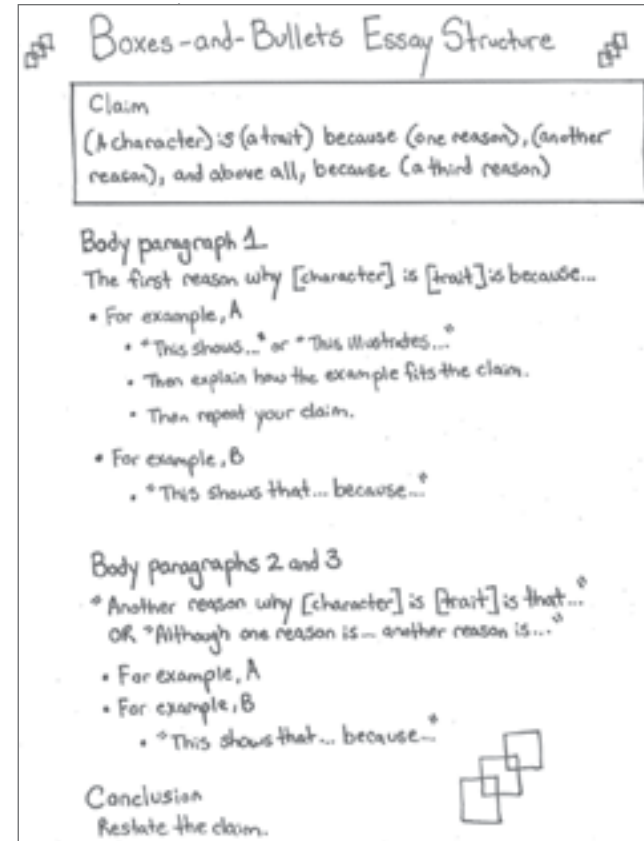 Boxes-and-Bullets Essay Structure
Claim
(A character) is (a trait) because (one reason), (another
reason), and above all, because (a third reason)
Body paragraph 1
The first reason why [character] is [trait] is because...
• For example, A
• "This shows..." or "This illustrates..."
• Then explain how the example fits the claim.
• Then repeat your claim.
• For example, B
• "This shows that... because..."
Body paragraphs 2 and 3
"Another reason why [character] is [trait] is that..."
OR "Although one reason is... another reason is..."
• For example, A
• For example, B
• "This shows that... because..."
Conclusion
Restate the claim.